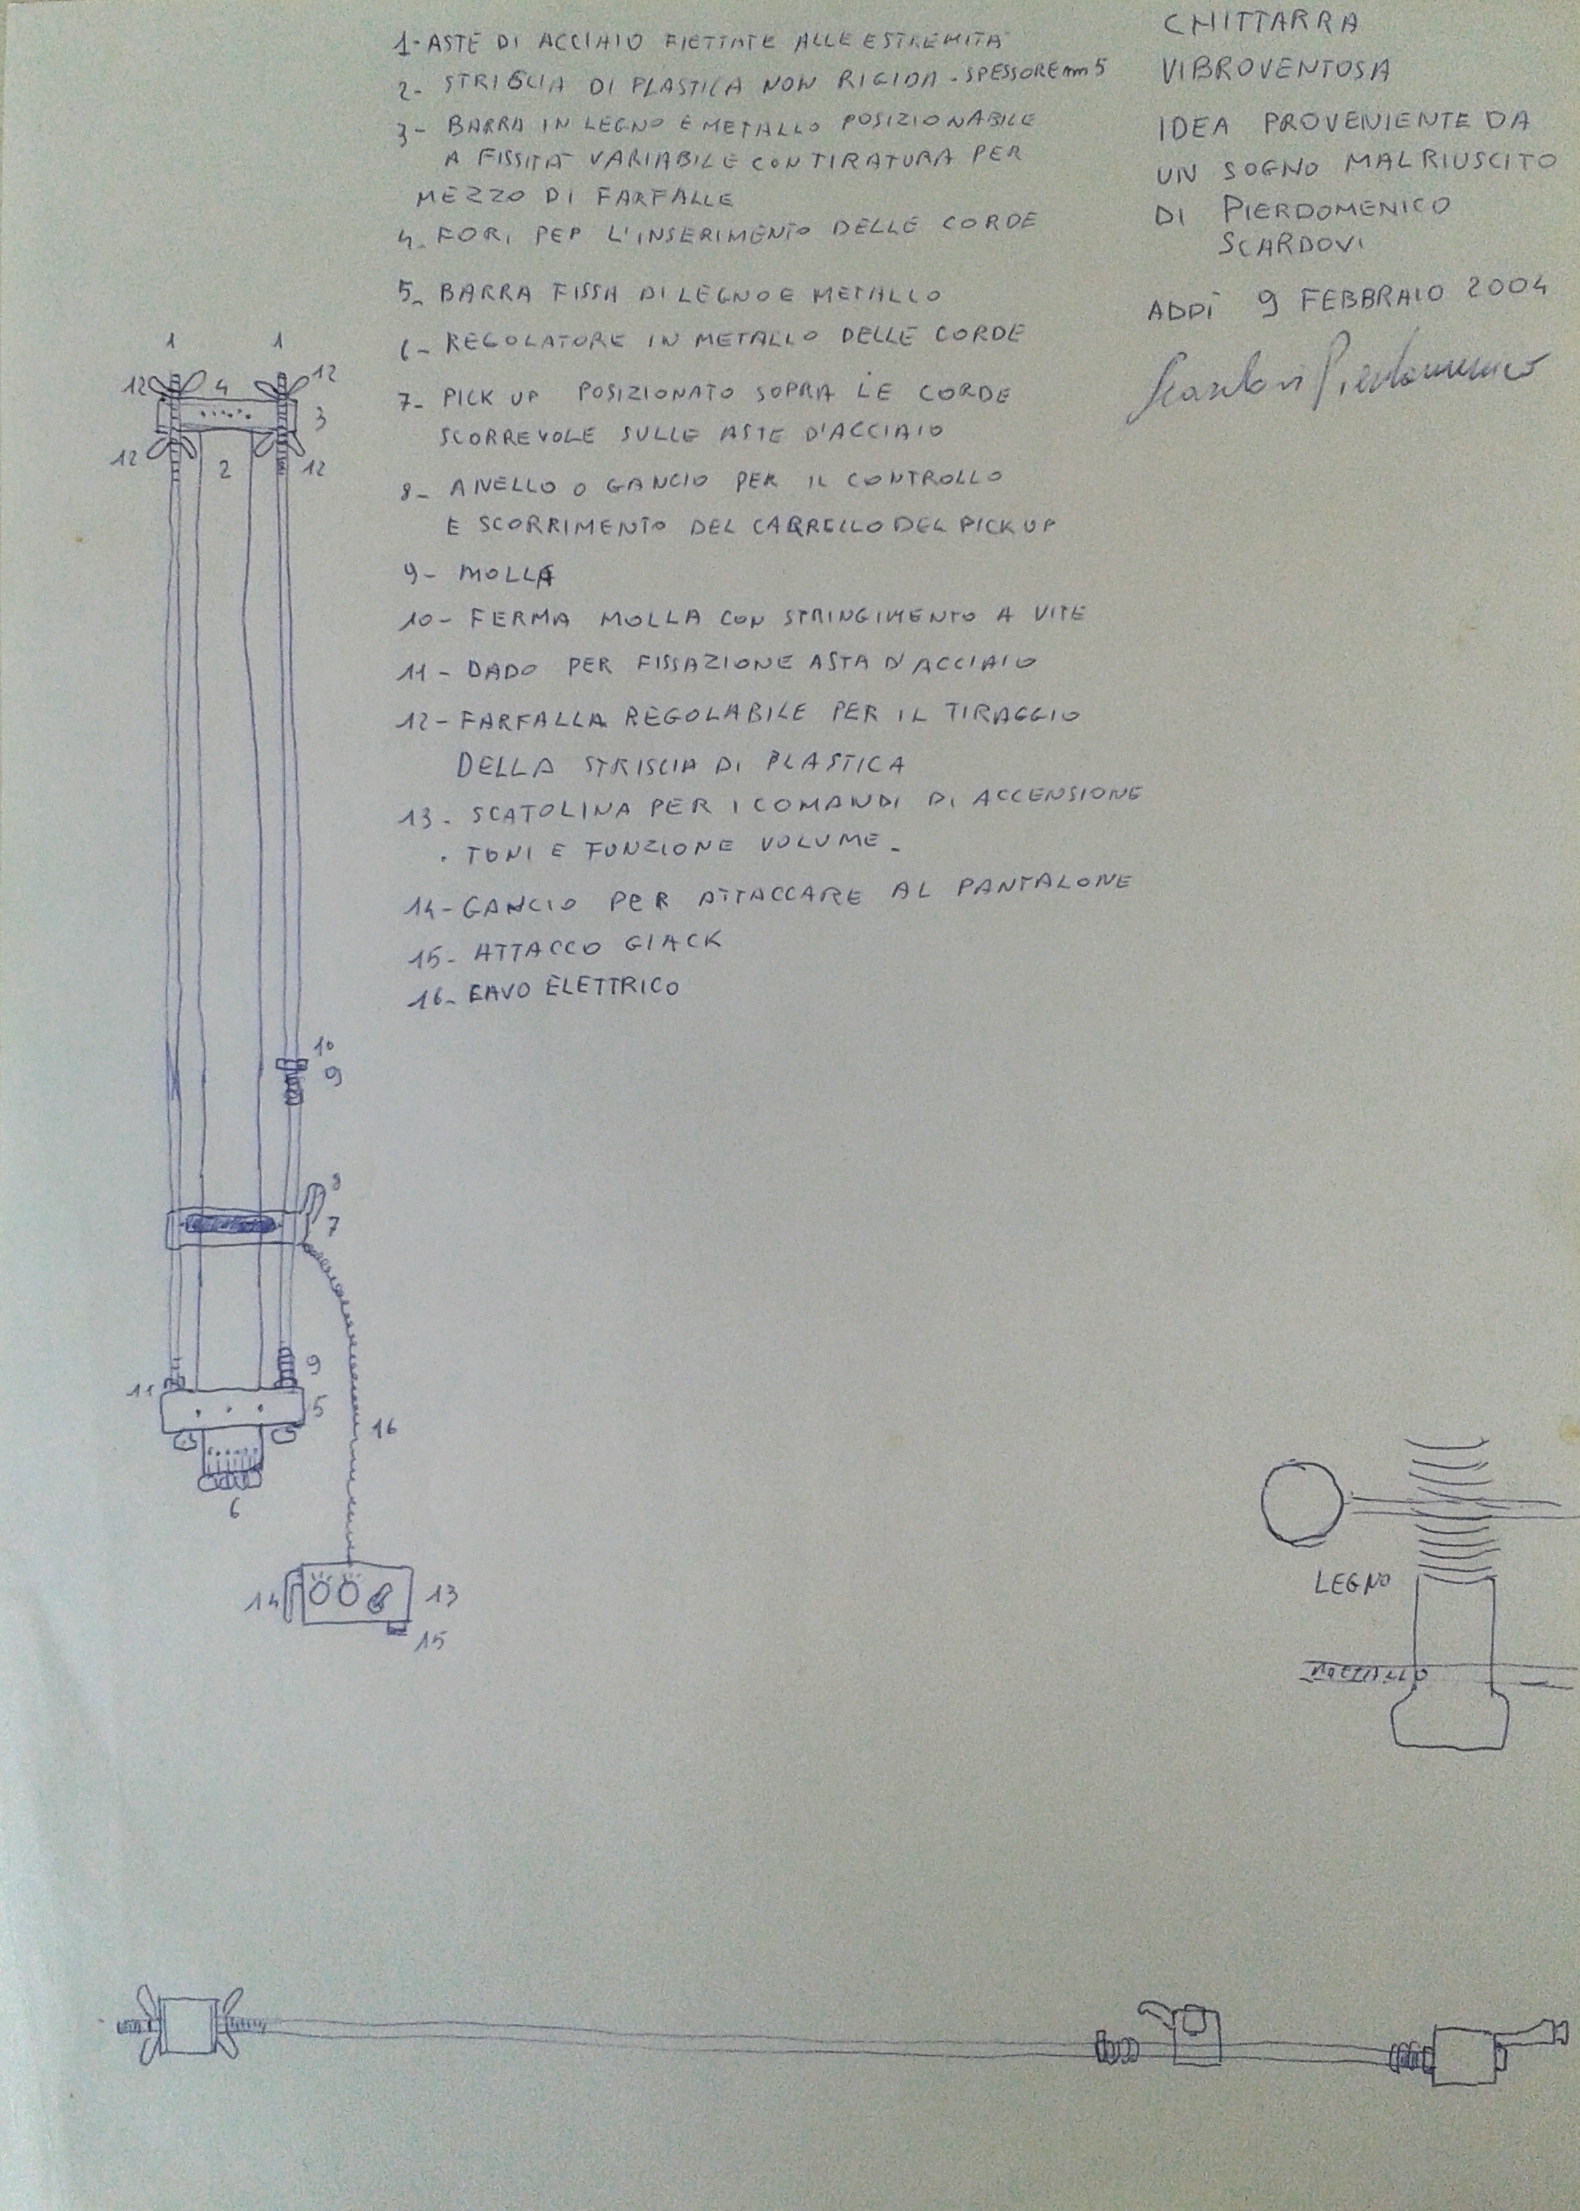 CHITTARRA
VIBROVENTOSA
IDEA PROVENIENTE DA
UN SOGNO MALRIUSCITO
DI PIERDOMENICO
SCARDOVI
ADDÌ 9 FEBBRAIO 2004
Scardovi Pierdomenico
1-ASTE DI ACCIAIO FIETTATE ALLE ESTREMITÀ
2- STRISCIA DI PLASTICA NON RIGIDA - SPESSORE mm 5
3- BARRA IN LEGNO E METALLO POSIZIONABILE
A FISSITÀ VARIABILE CON TIRATURA PER
MEZZO DI FARFALLE
4- FORI PER L'INSERIMENTO DELLE CORDE
5- BARRA FISSA DI LEGNO E METALLO
6- REGOLATORE IN METALLO DELLE CORDE
7- PICK UP POSIZIONATO SOPRA LE CORDE
SCORREVOLE SULLE ASTE D'ACCIAIO
8- ANELLO O GANCIO PER IL CONTROLLO
E SCORRIMENTO DEL CARRELLO DEL PICK UP
9- MOLLA
10- FERMA MOLLA CON STRINGIMENTO A VITE
11- DADO PER FISSAZIONE ASTA D'ACCIAIO
12- FARFALLA REGOLABILE PER IL TIRAGGIO
DELLA STRISCIA DI PLASTICA
13- SCATOLINA PER I COMANDI DI ACCENSIONE
. TONI E FUNZIONE VOLUME -
14- GANCIO PER ATTACCARE AL PANTALONE
15- ATTACCO GIACK
16- CAVO ELETTRICO
1 1
12 4 12
3
12 2 12
10
9
8
7
9
11 5
16
6
14 13
15
LEGNO
METALLO